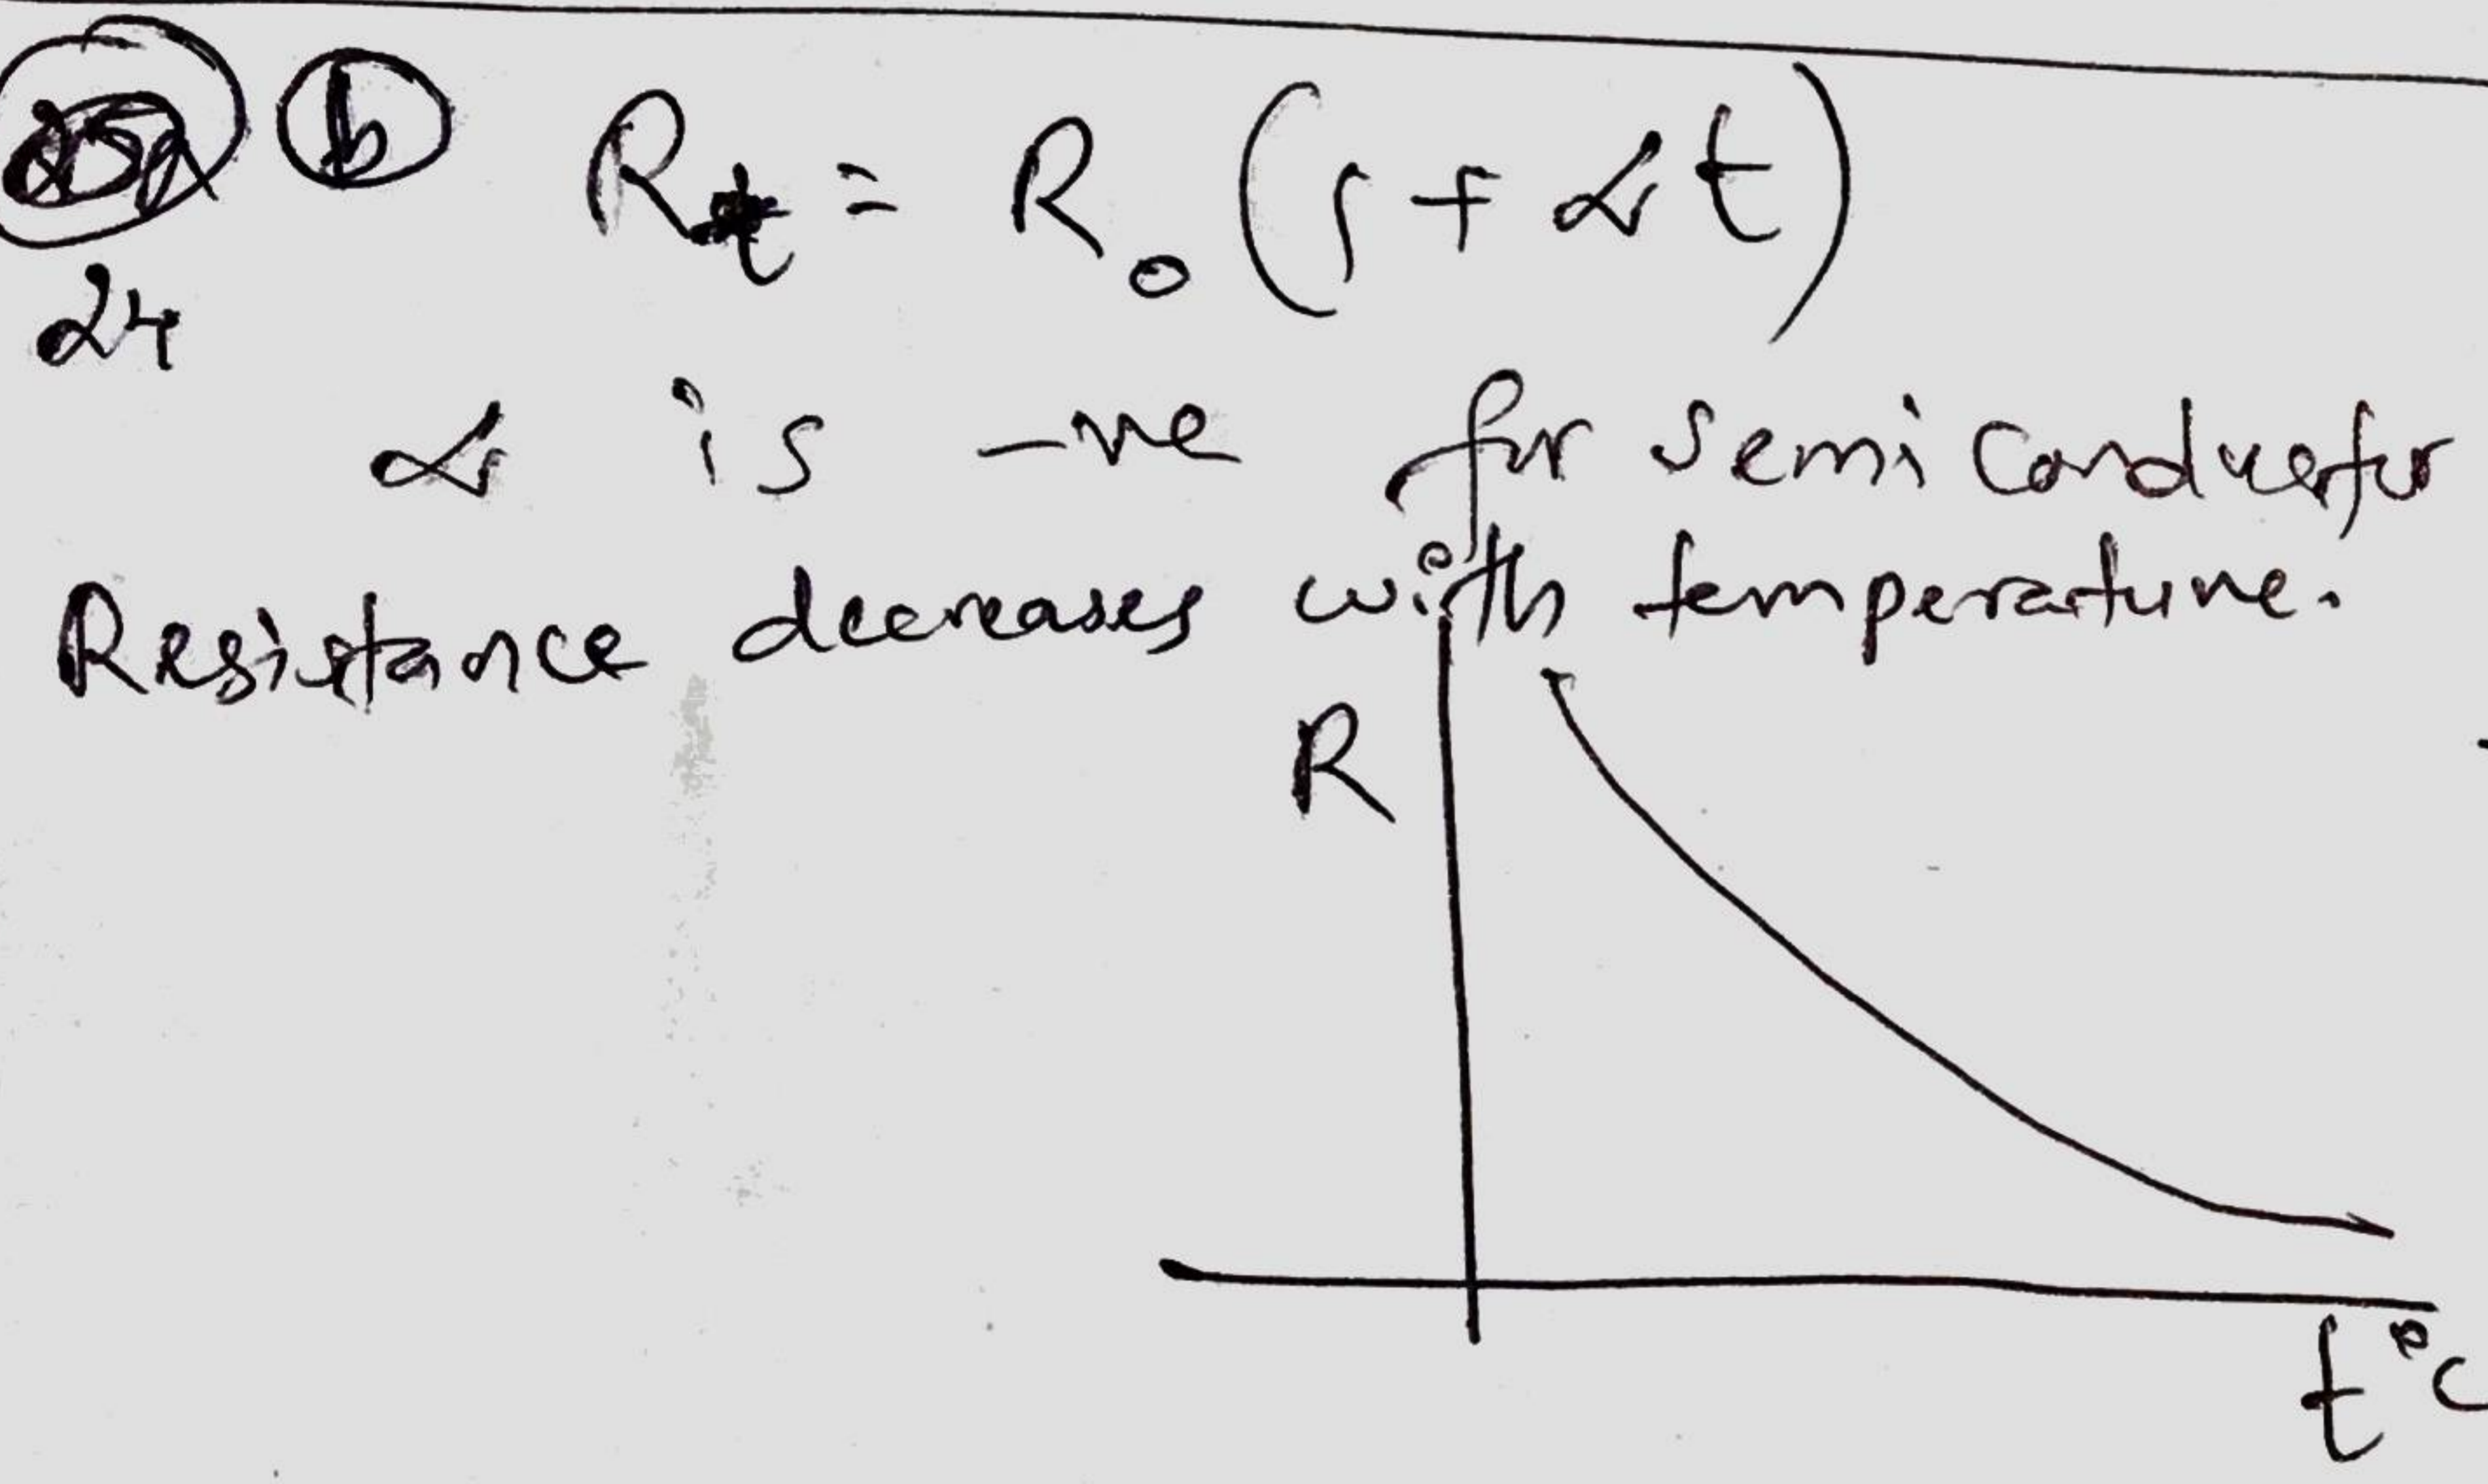 (b) Rt = R₀ (1 + αt)
24
α is -ve for semi conductor
Resistance decreases with temperature.
R
t°C